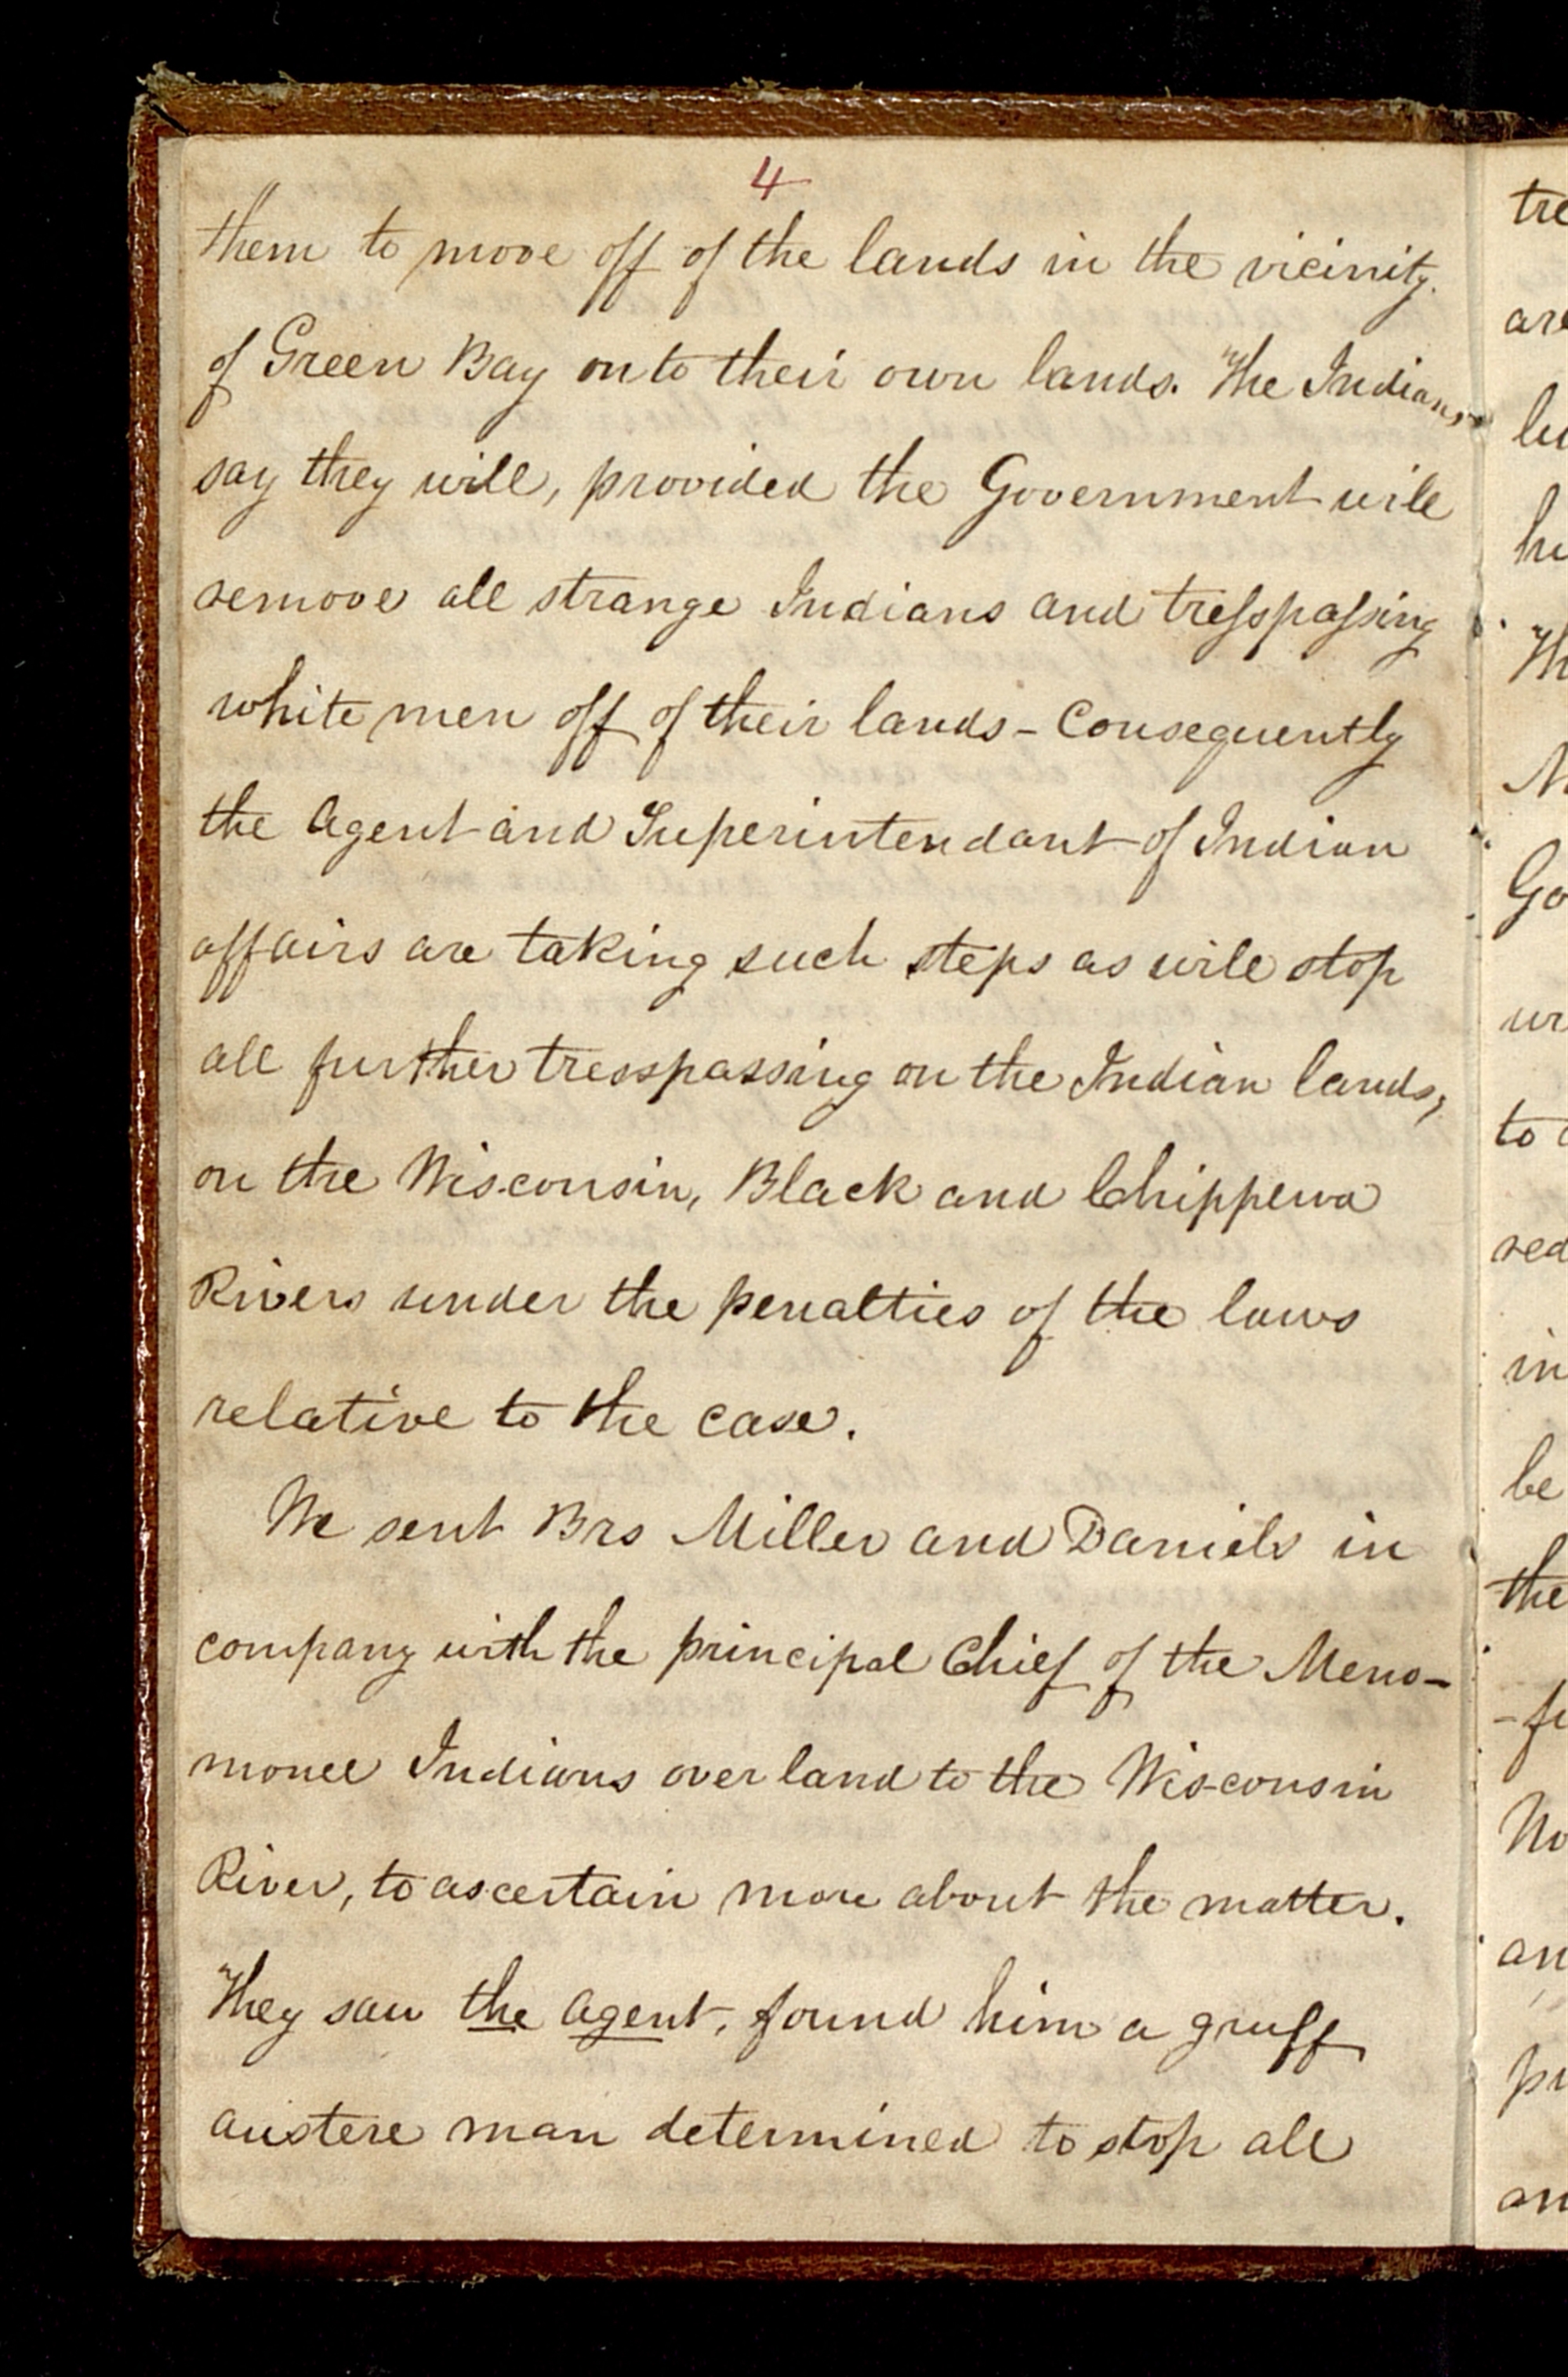 4
them to move off of the lands in the vicinity.
of Green Bay onto their own lands. The Indians,
say they will, provided the Government will
remove all strange Indians and tresspassing
white men off of their lands - Consequently
the Agent and Superintendant of Indian
affairs are taking such steps as will stop
all further tresspassing on the Indian lands,
on the Wisconsin, Black and Chippewa
Rivers under the penalties of the laws
relative to the case.
We sent Brs Miller and Daniels in
company with the principal Chief of the Meno-
monee Indians over land to the Wisconsin
River, to ascertain more about the matter.
They saw the agent, found him a gruff
austere man determined to stop all
tre
are
lu
hu
Th
Go
to
red
in
be
the
-fi
No
an
pr
an